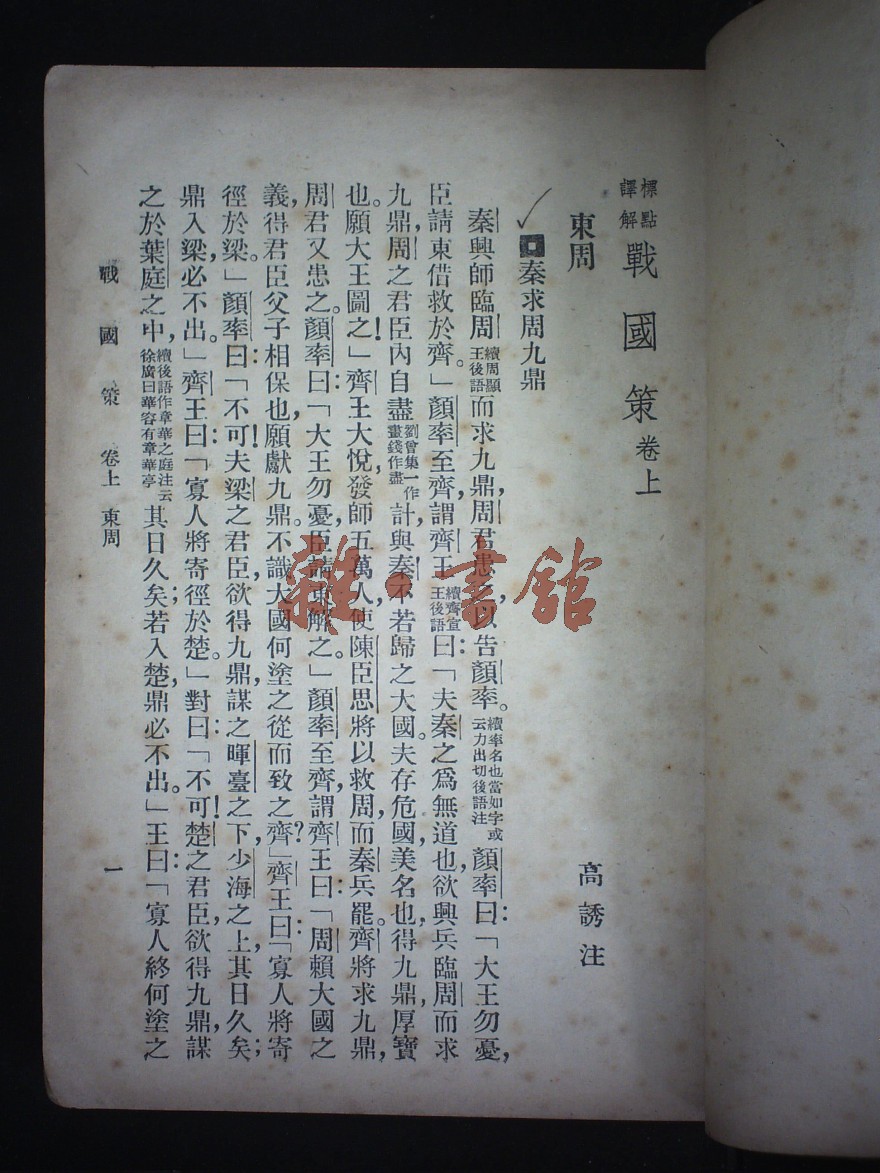 標點
譯解
戰國策卷上
高誘注
東周
秦求周九鼎
秦興師臨周續周顯王後語而求九鼎，周君患之，以告顏率。續率名也當如字或云力出切後語注顏率曰：「大王勿憂，
臣請東借救於齊。」顏率至齊，謂齊王續齊宣王後語曰：「夫秦之爲無道也，欲興兵臨周而求
九鼎，周之君臣內自盡劉曾集一作畫錢作盡計，與秦，不若歸之大國。夫存危國，美名也，得九鼎，厚寶
也。願大王圖之！」齊王大悅，發師五萬人，使陳臣思將以救周，而秦兵罷。齊將求九鼎，
周君又患之。顏率曰：「大王勿憂，臣請東解之。」顏率至齊，謂齊王曰：「周賴大國之
義，得君臣父子相保也，願獻九鼎。不識大國何塗之從而致之齊？」齊王曰：「寡人將寄
徑於梁。」顏率曰：「不可！夫梁之君臣欲得九鼎，謀之暉臺之下，少海之上，其日久矣；
鼎入梁，必不出。」齊王曰：「寡人將寄徑於楚。」對曰：「不可！楚之君臣欲得九鼎，謀
之於葉庭之中，續後語作章華之庭注云徐廣曰華容有章華亭其日久矣；若入楚，鼎必不出。」王曰：「寡人終何塗之
戰國策 卷上 東周
一
雜·書館